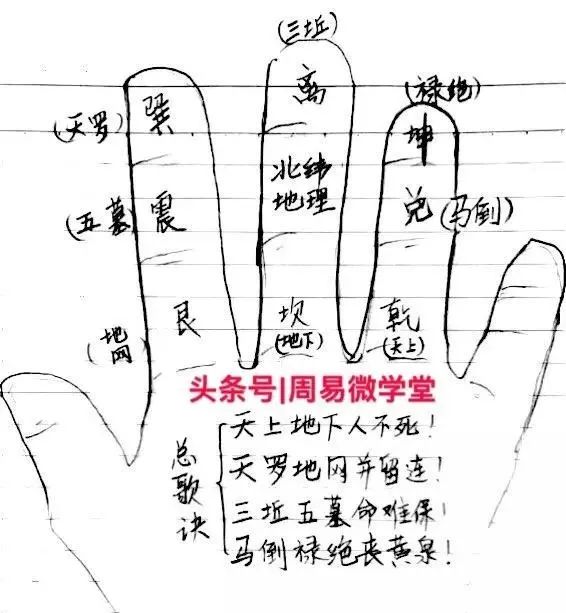 (三坵)
离
(禄绝)
(天罗) 巽
坤
北纬
地理
(五墓) 震
兑 (马倒)
(地网) 艮
坎
(地下)
乾
(天上)
头条号|周易微学堂
总歌诀
天上地下人不死！
天罗地网并留连！
三坵五墓命难保！
马倒禄绝丧黄泉！